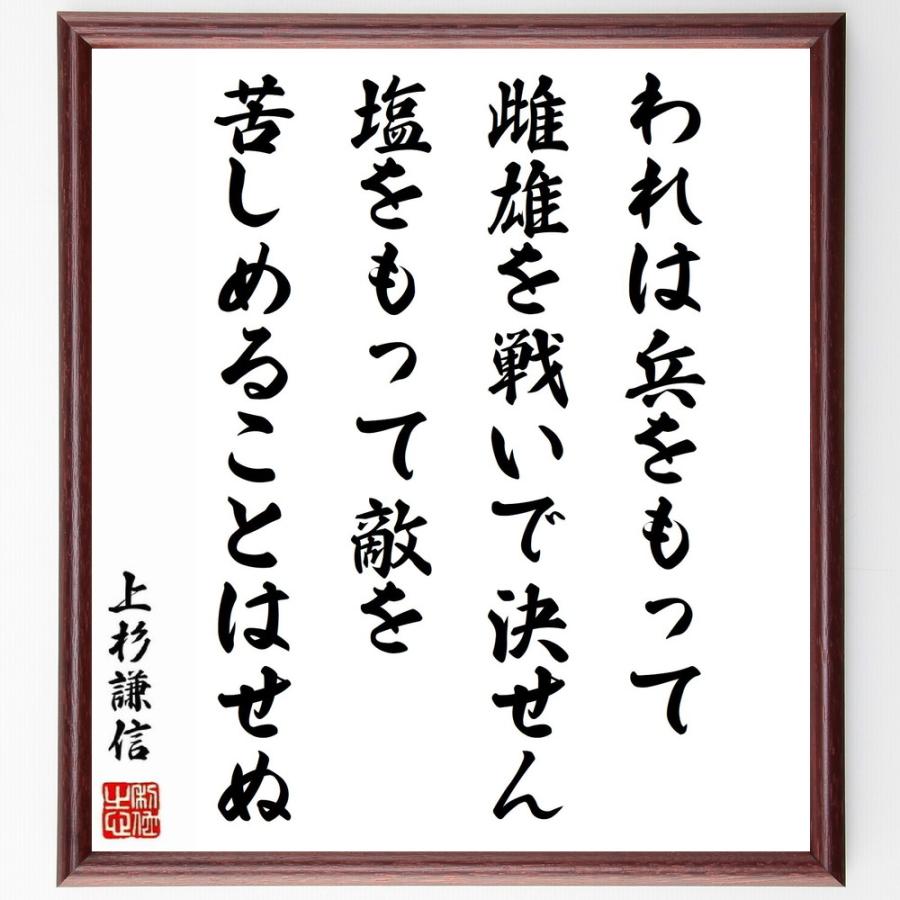 われは兵をもって
雌雄を戦いで決せん
塩をもって敵を
苦しめることはせぬ
上杉謙信